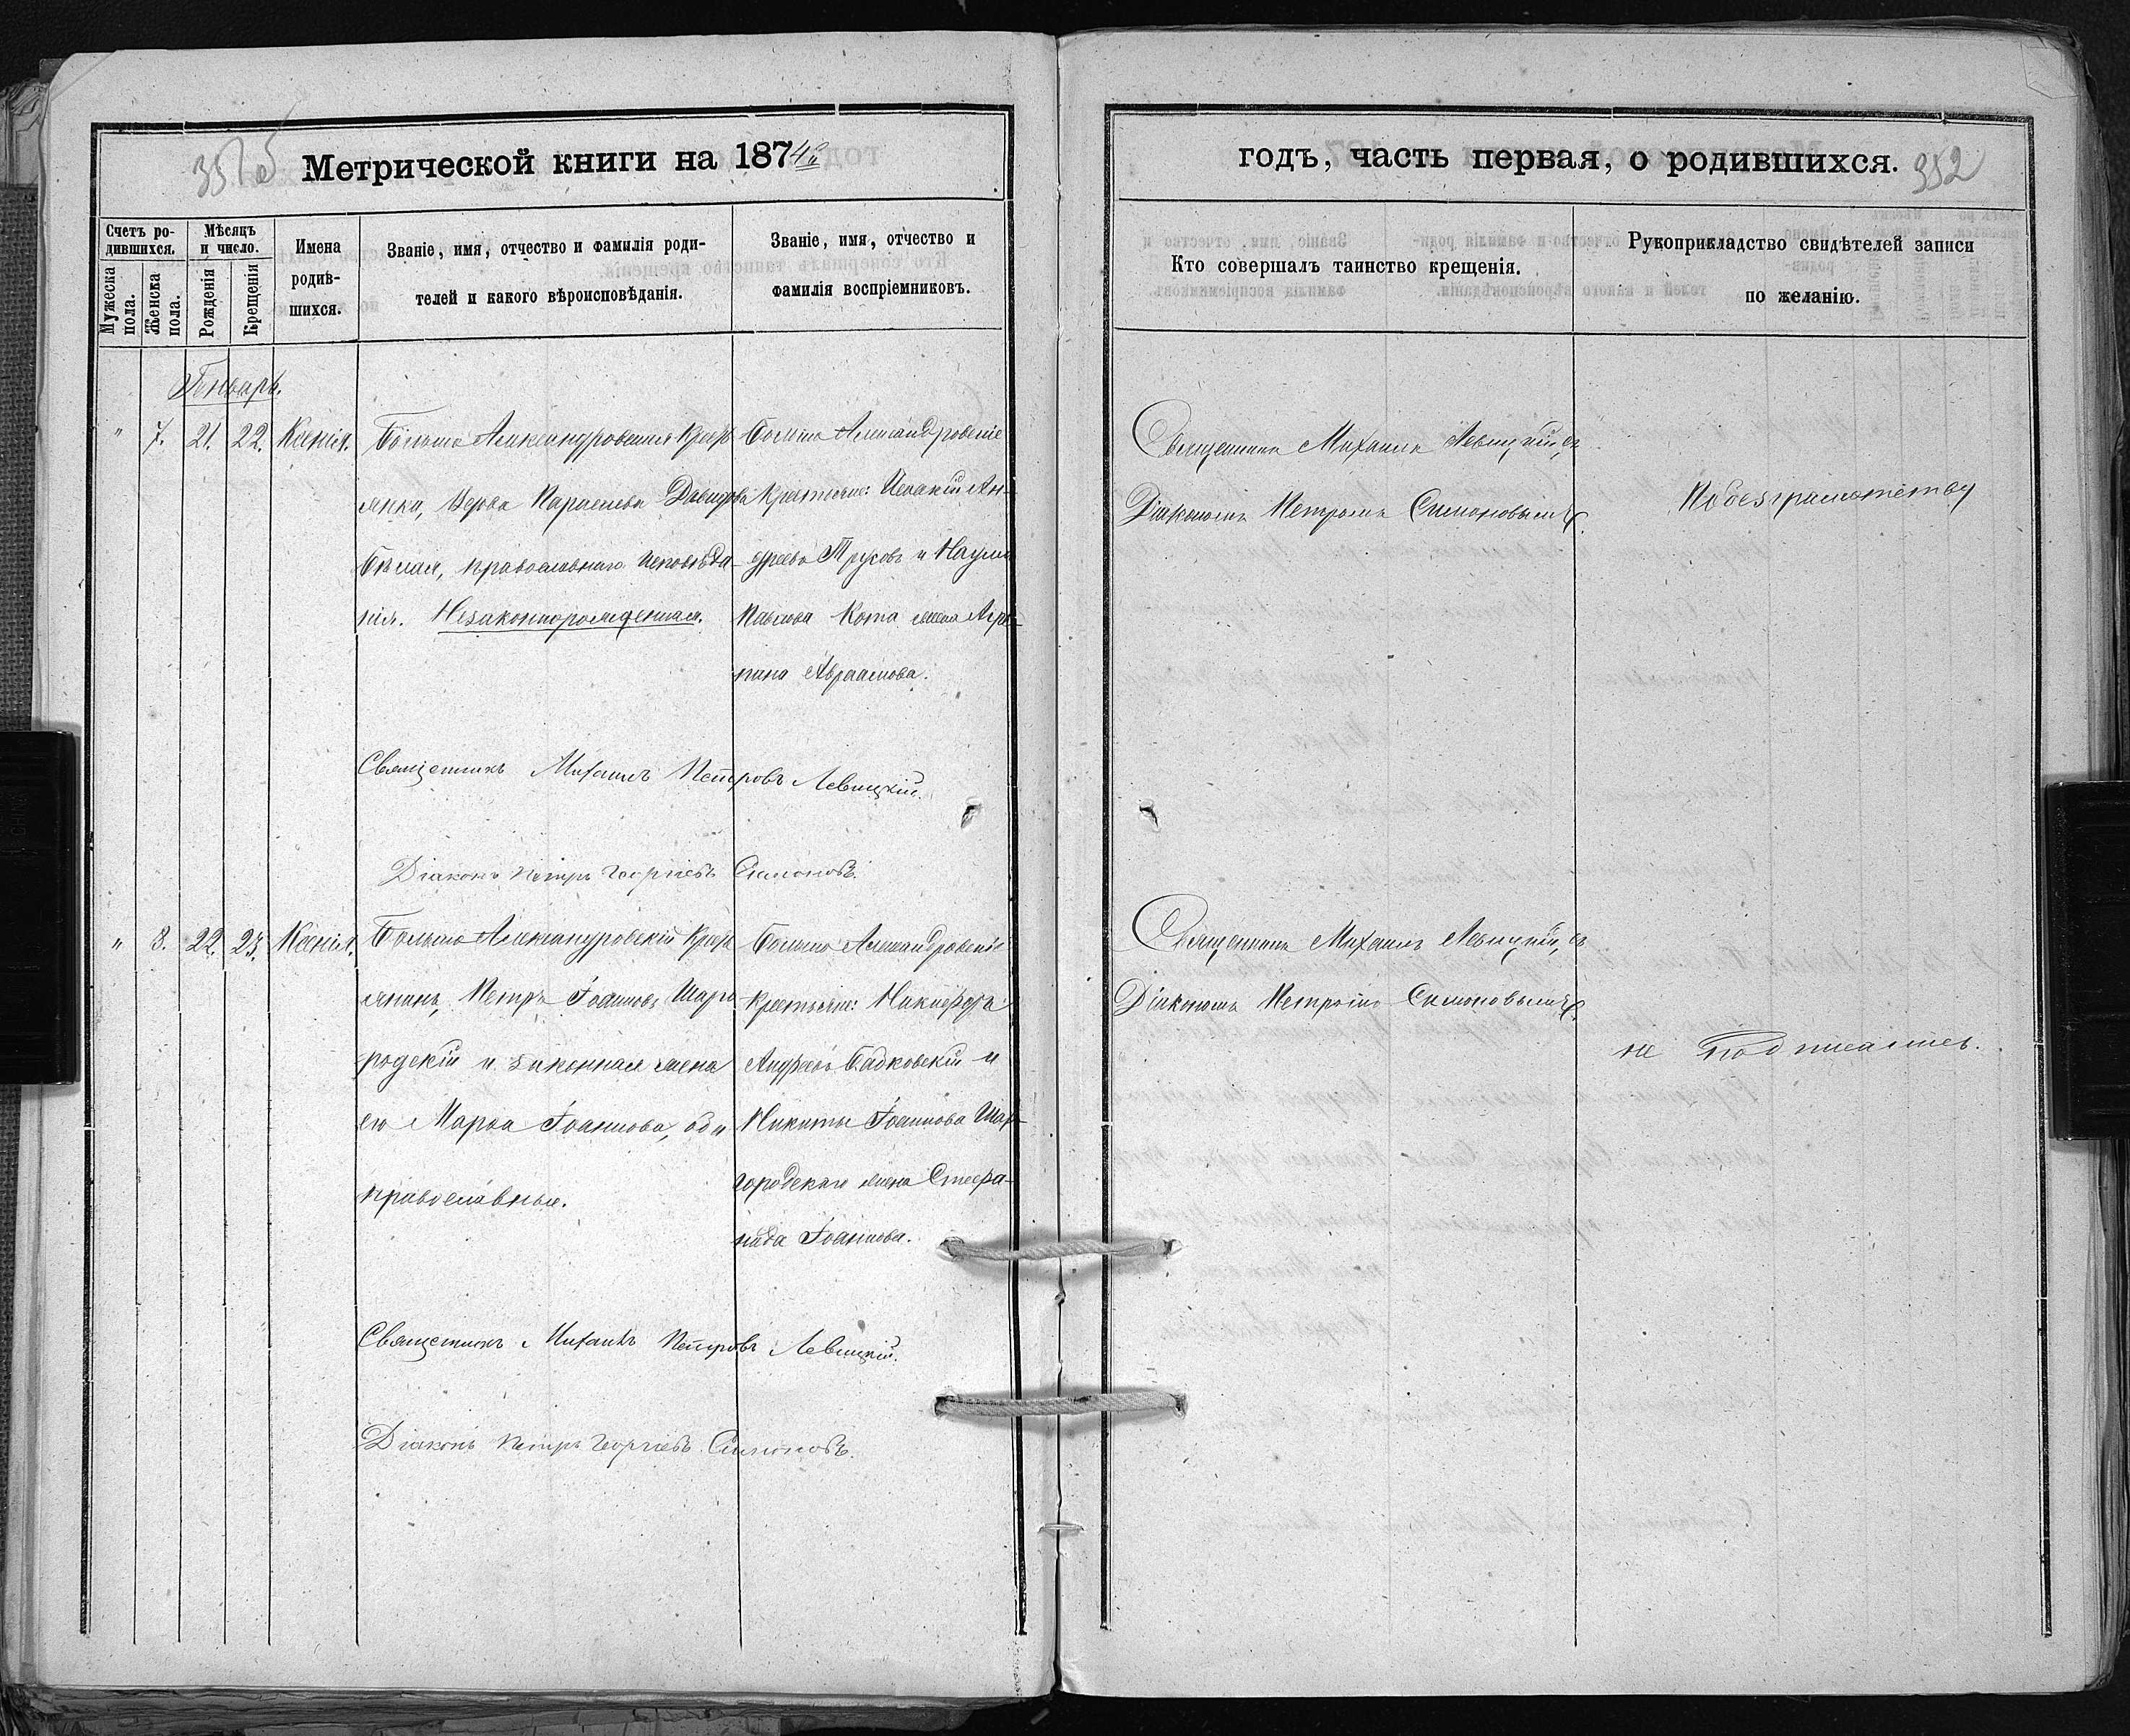 Метрической книги на 1874й
годъ, часть первая, о родившихся. 352
Счетъ родившихся.
Мужеска пола.
Женска пола.
Мѣсяцъ и число.
Рожденія
Крещенія
Имена
родив-
шихся.
Званіе, имя, отчество и фамилія роди-
телей и какого вѣроисповѣданія.
Званіе, имя, отчество и
фамилія воспріемниковъ.
Кто совершалъ таинство крещенія.
Рукоприкладство свидѣтелей записи
по желанію.
Генварь.
" 7. 21. 22. Ксенія.
Больше Александровская Кресть
янка, Давидова
Бѣлая, православнаго исповѣда-
нія. Незаконнорожденная.
Больше Александровскіе
Крестьяне: Исаакій Ан-
дреевъ и Наума
Павлова Кота жена Агри-
пина Авраамова.
Священникъ Михаилъ Левицкій, съ
Діакономъ Петромъ Симоновымъ.
По безграмотству
Священникъ Михаилъ Петровъ Левицкій.
Діаконъ Петръ Георгіевъ Симоновъ.
" 8. 22. 23. Ксенія.
Больше Александровскій Кресть
янинъ, Петръ Іоанновъ Шаро
родскій и законная жена
его Марѳа Іоаннова, оба
православные.
Больше Александровскіе
Крестьяне: Никифоръ
Андреевъ Садковскій и
Никиты Іоаннова Шар-
городскаго жена Стефа-
нида Іоаннова.
Священникъ Михаилъ Левицкій, съ
Діакономъ Петромъ Симоновымъ.
не подписались.
Священникъ Михаилъ Петровъ Левицкій.
Діаконъ Петръ Георгіевъ Симоновъ.